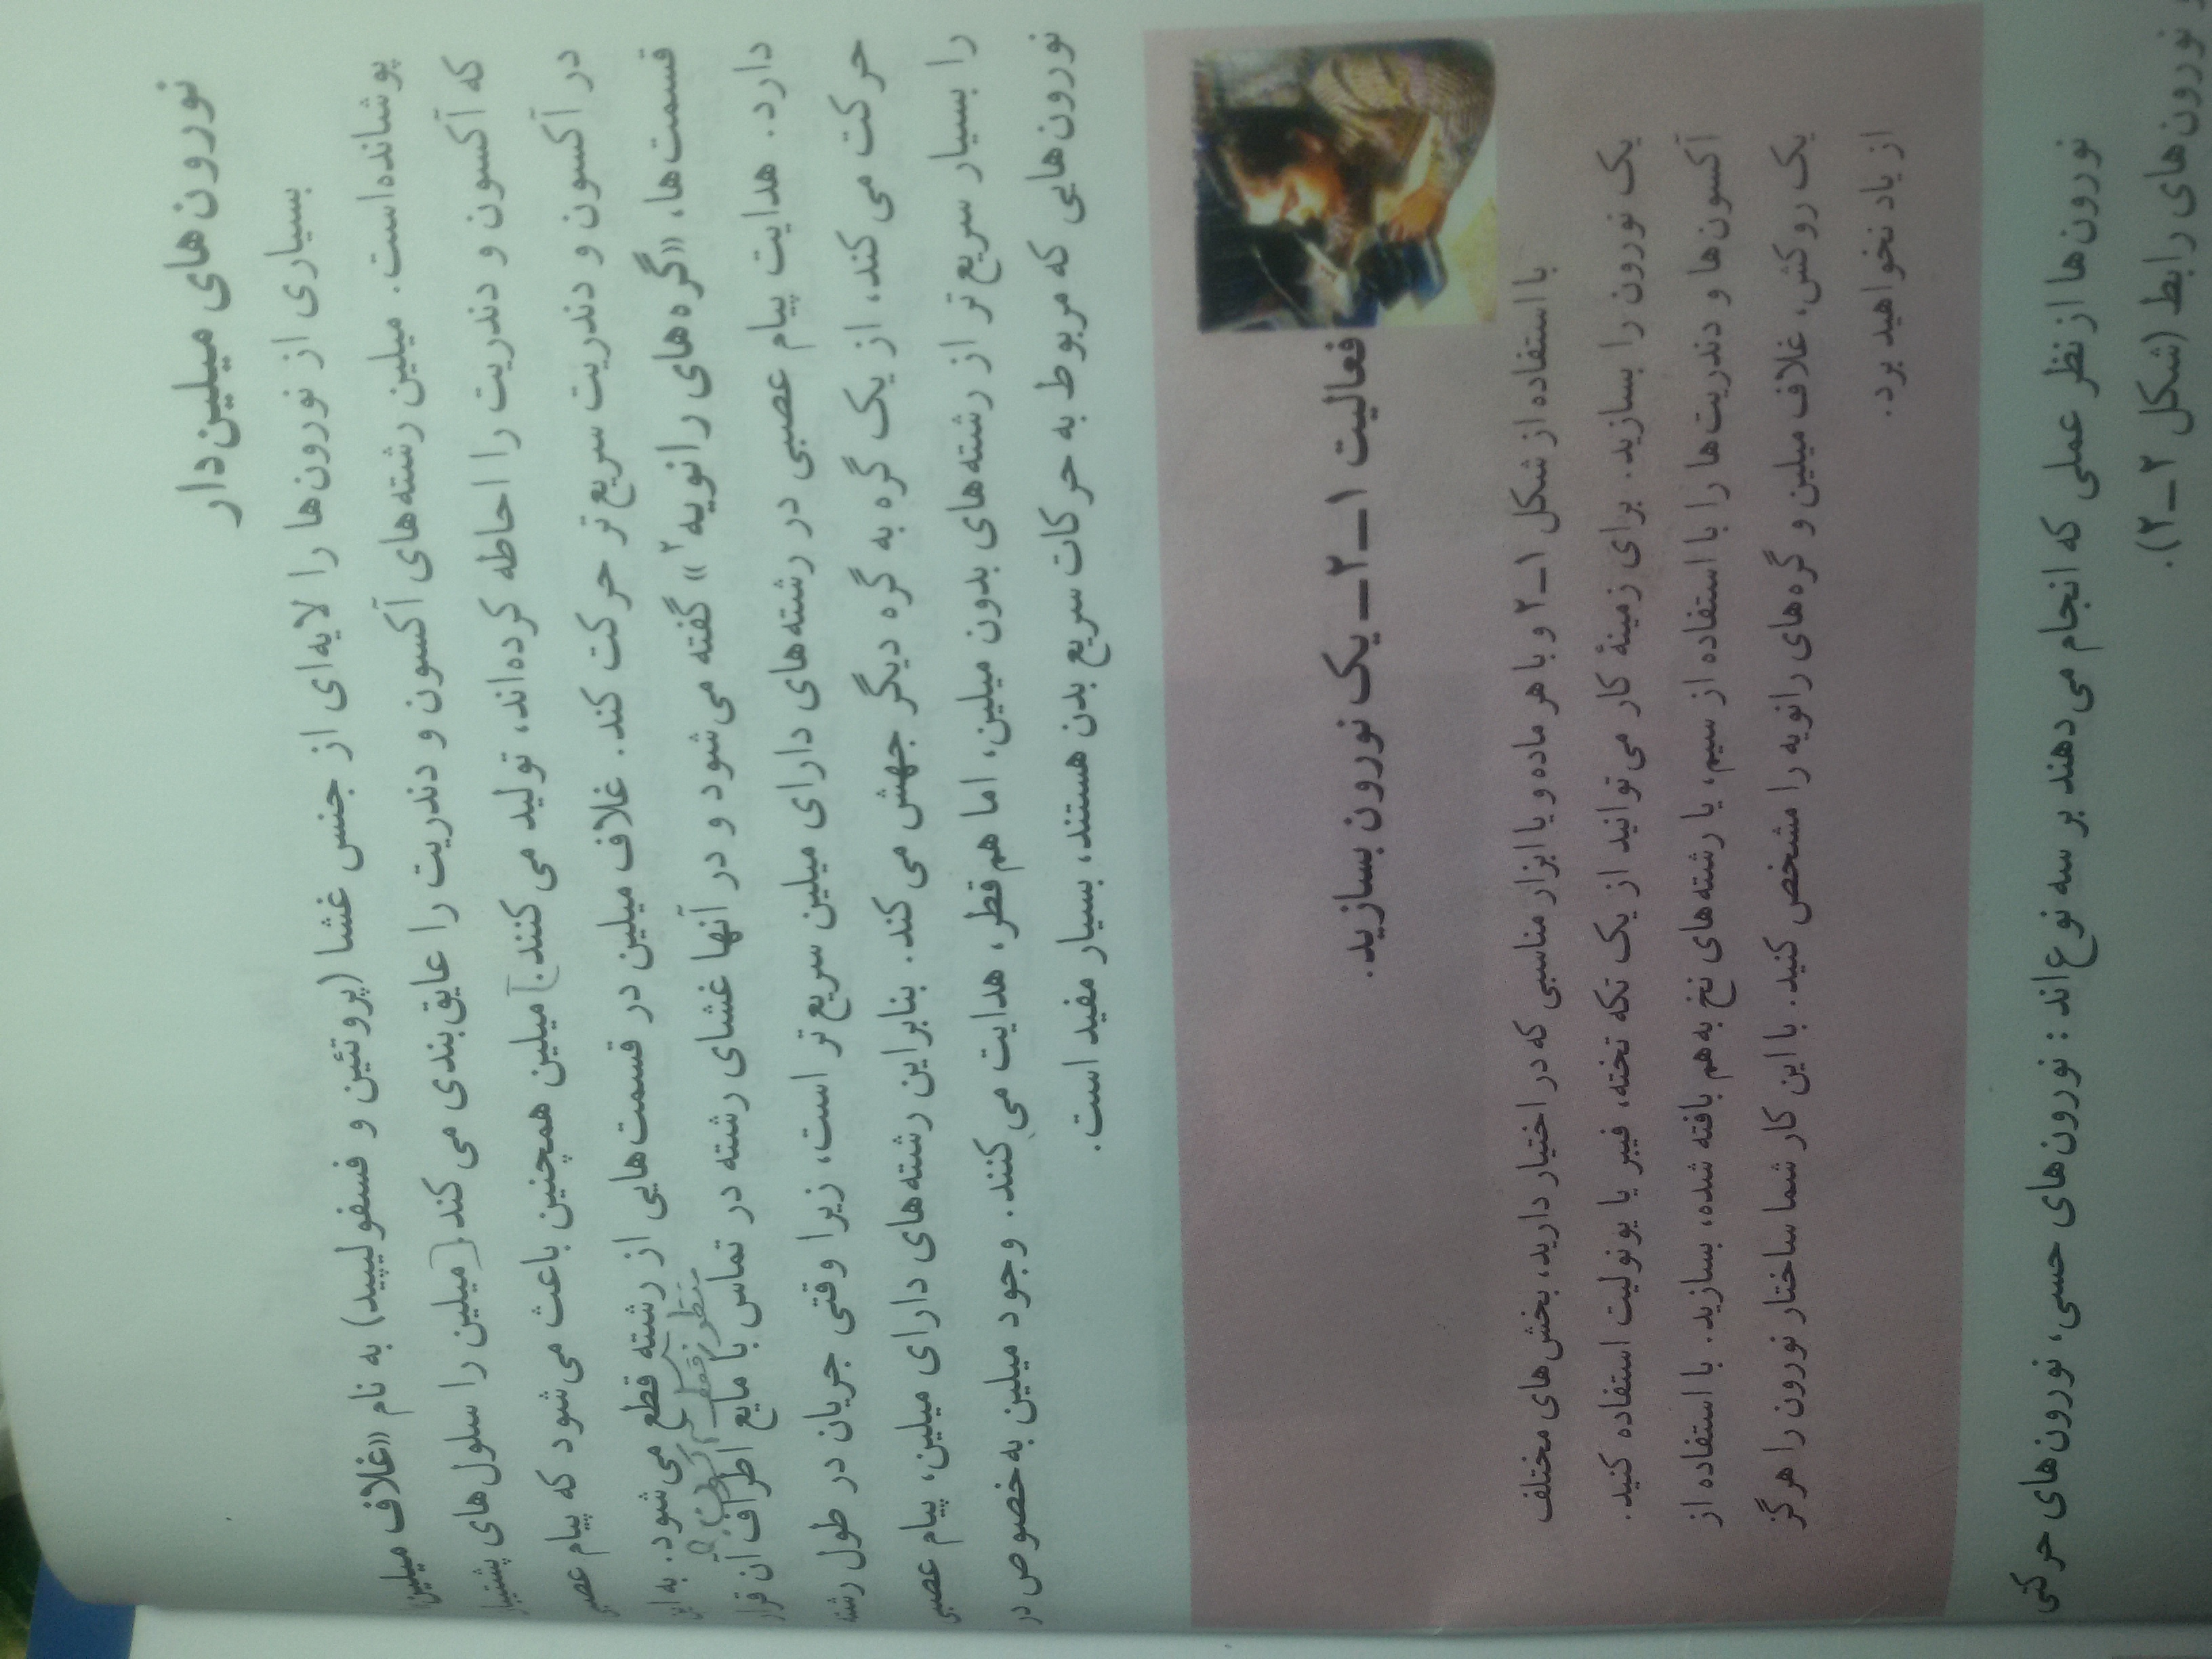 نورون‌های میلین‌دار
بسیاری از نورون‌ها را لایه‌ای از جنس غشا (پروتئین و فسفولیپید) به نام «غلاف میلین»
پوشانده‌است. میلین رشته‌های آکسون و دندریت را عایق‌بندی می‌کند. میلین را سلول‌های پشتیبان
که آکسون و دندریت را احاطه کرده‌اند، تولید می‌کنند. میلین همچنین باعث می‌شود که پیام عصبی
در آکسون و دندریت سریع‌تر حرکت کند. غلاف میلین در قسمت‌هایی از رشته قطع می‌شود. به این
قسمت‌ها، «گره‌های رانویه۲» گفته می‌شود و در آنها غشای رشته در تماس با مایع اطراف آن قرار
دارد. هدایت پیام عصبی در رشته‌های دارای میلین سریع‌تر است، زیرا وقتی جریان در طول رشته
حرکت می‌کند، از یک گره به گره دیگر جهش می‌کند. بنابراین رشته‌های دارای میلین، پیام عصبی
را بسیار سریع‌تر از رشته‌های بدون میلین، اما هم‌قطر، هدایت می‌کنند. وجود میلین به‌خصوص در
نورون‌هایی که مربوط به حرکات سریع بدن هستند، بسیار مفید است.
فعالیت ۱ــ۲ــ یک نورون بسازید.
با استفاده از شکل ۱ــ۲ و با هر ماده و یا ابزار مناسبی که در اختیار دارید، بخش‌های مختلف
یک نورون را بسازید. برای زمینهٔ کار می‌توانید از یک تکه تخته، فیبر یا یونولیت استفاده کنید.
آکسون‌ها و دندریت‌ها را با استفاده از سیم، یا رشته‌های نخ به‌هم بافته شده، بسازید. با استفاده از
یک روکش، غلاف میلین و گره‌های رانویه را مشخص کنید. با این کار شما ساختار نورون را هرگز
از یاد نخواهید برد.
نورون‌ها از نظر عملی که انجام می‌دهند بر سه نوع‌اند : نورون‌های حسی، نورون‌های حرکتی
و نورون‌های رابط (شکل ۲ــ۲).